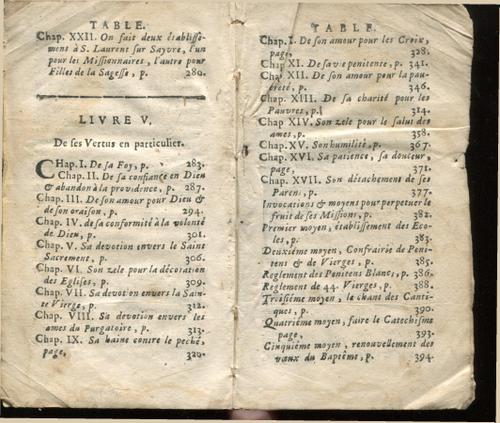 TABLE.
Chap. XXII. On fait deux établisse-
mens à S. Laurent sur Sayvre, l'un
pour les Missionnaires, l'autre pour
Filles de la Sagesse, p. 280.
LIVRE V.
De ses Vertus en particulier.
CHap. I. De sa Foy, p. 283.
Chap. II. De sa confiance en Dieu
& abandon à la providence, p. 287.
Chap. III. De son amour pour Dieu &
de son oraison, p. 294.
Chap. IV. de sa conformité à la volonté
de Dieu, p. 301.
Chap. V. Sa devotion envers le Saint
Sacrement, p. 306.
Chap. VI. Son zele pour la décoration
des Eglises, p. 309.
Chap. VII. Sa devotion envers la Sain-
te Vierge, p. 312.
Chap. VIII. Sa devotion envers les
ames du Purgatoire, p. 313.
Chap. IX. Sa haine contre le peché,
page, 320.
TABLE.
Chap. I. De son amour pour les Croix,
page, 328.
Chap XI. De sa vie penitente, p. 341.
Chap XII. De son amour pour la pau-
vreté, p. 346.
Chap. XIII. De sa charité pour les
Pauvres, p. 314.
Chap XIV. Son zele pour le salut des
ames, p. 358.
Chap. XV. Son humilité, p. 367.
Chap. XVI. Sa patience, sa douceur,
page, 371.
Chap. XVII. Son détachement de ses
Parens, p. 377.
Invocations & moyens pour perpetuer le
fruit de ses Missions, p. 382.
Premier moyen, établissement des Eco-
les, p. 383.
Deuxiéme moyen, Confrairie de Peni-
tens & de Vierges, p. 385.
Reglement des Penitens Blancs, p. 386.
Reglement de 44. Vierges, p. 388.
Troisiéme moyen, le chant des Canti-
ques, p. 390.
Quatriéme moyen, faire le Catechisme
page, 393.
Cinquiéme moyen, renouvellement des
vœux du Baptême, p. 394.